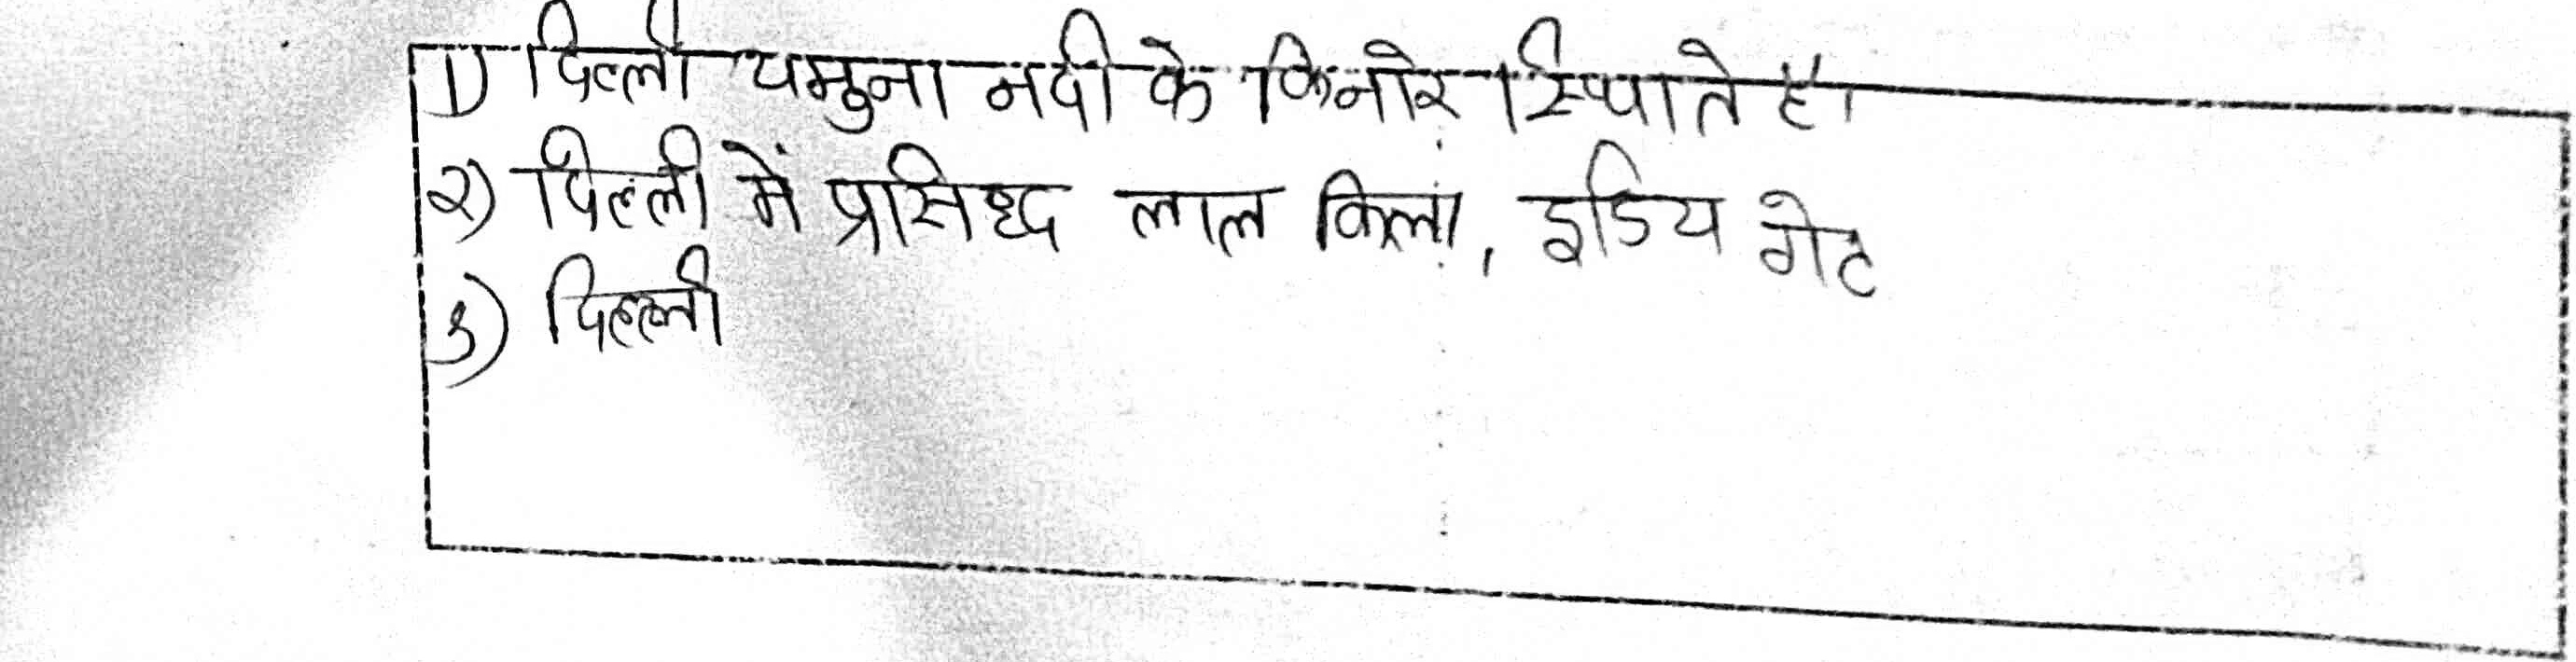 1) दिल्ली यमुना नदी के किनोर स्थिाते है।
२) दिल्ली में प्रसिध्द लाल किला, इडिय गेट
3) दिल्ली